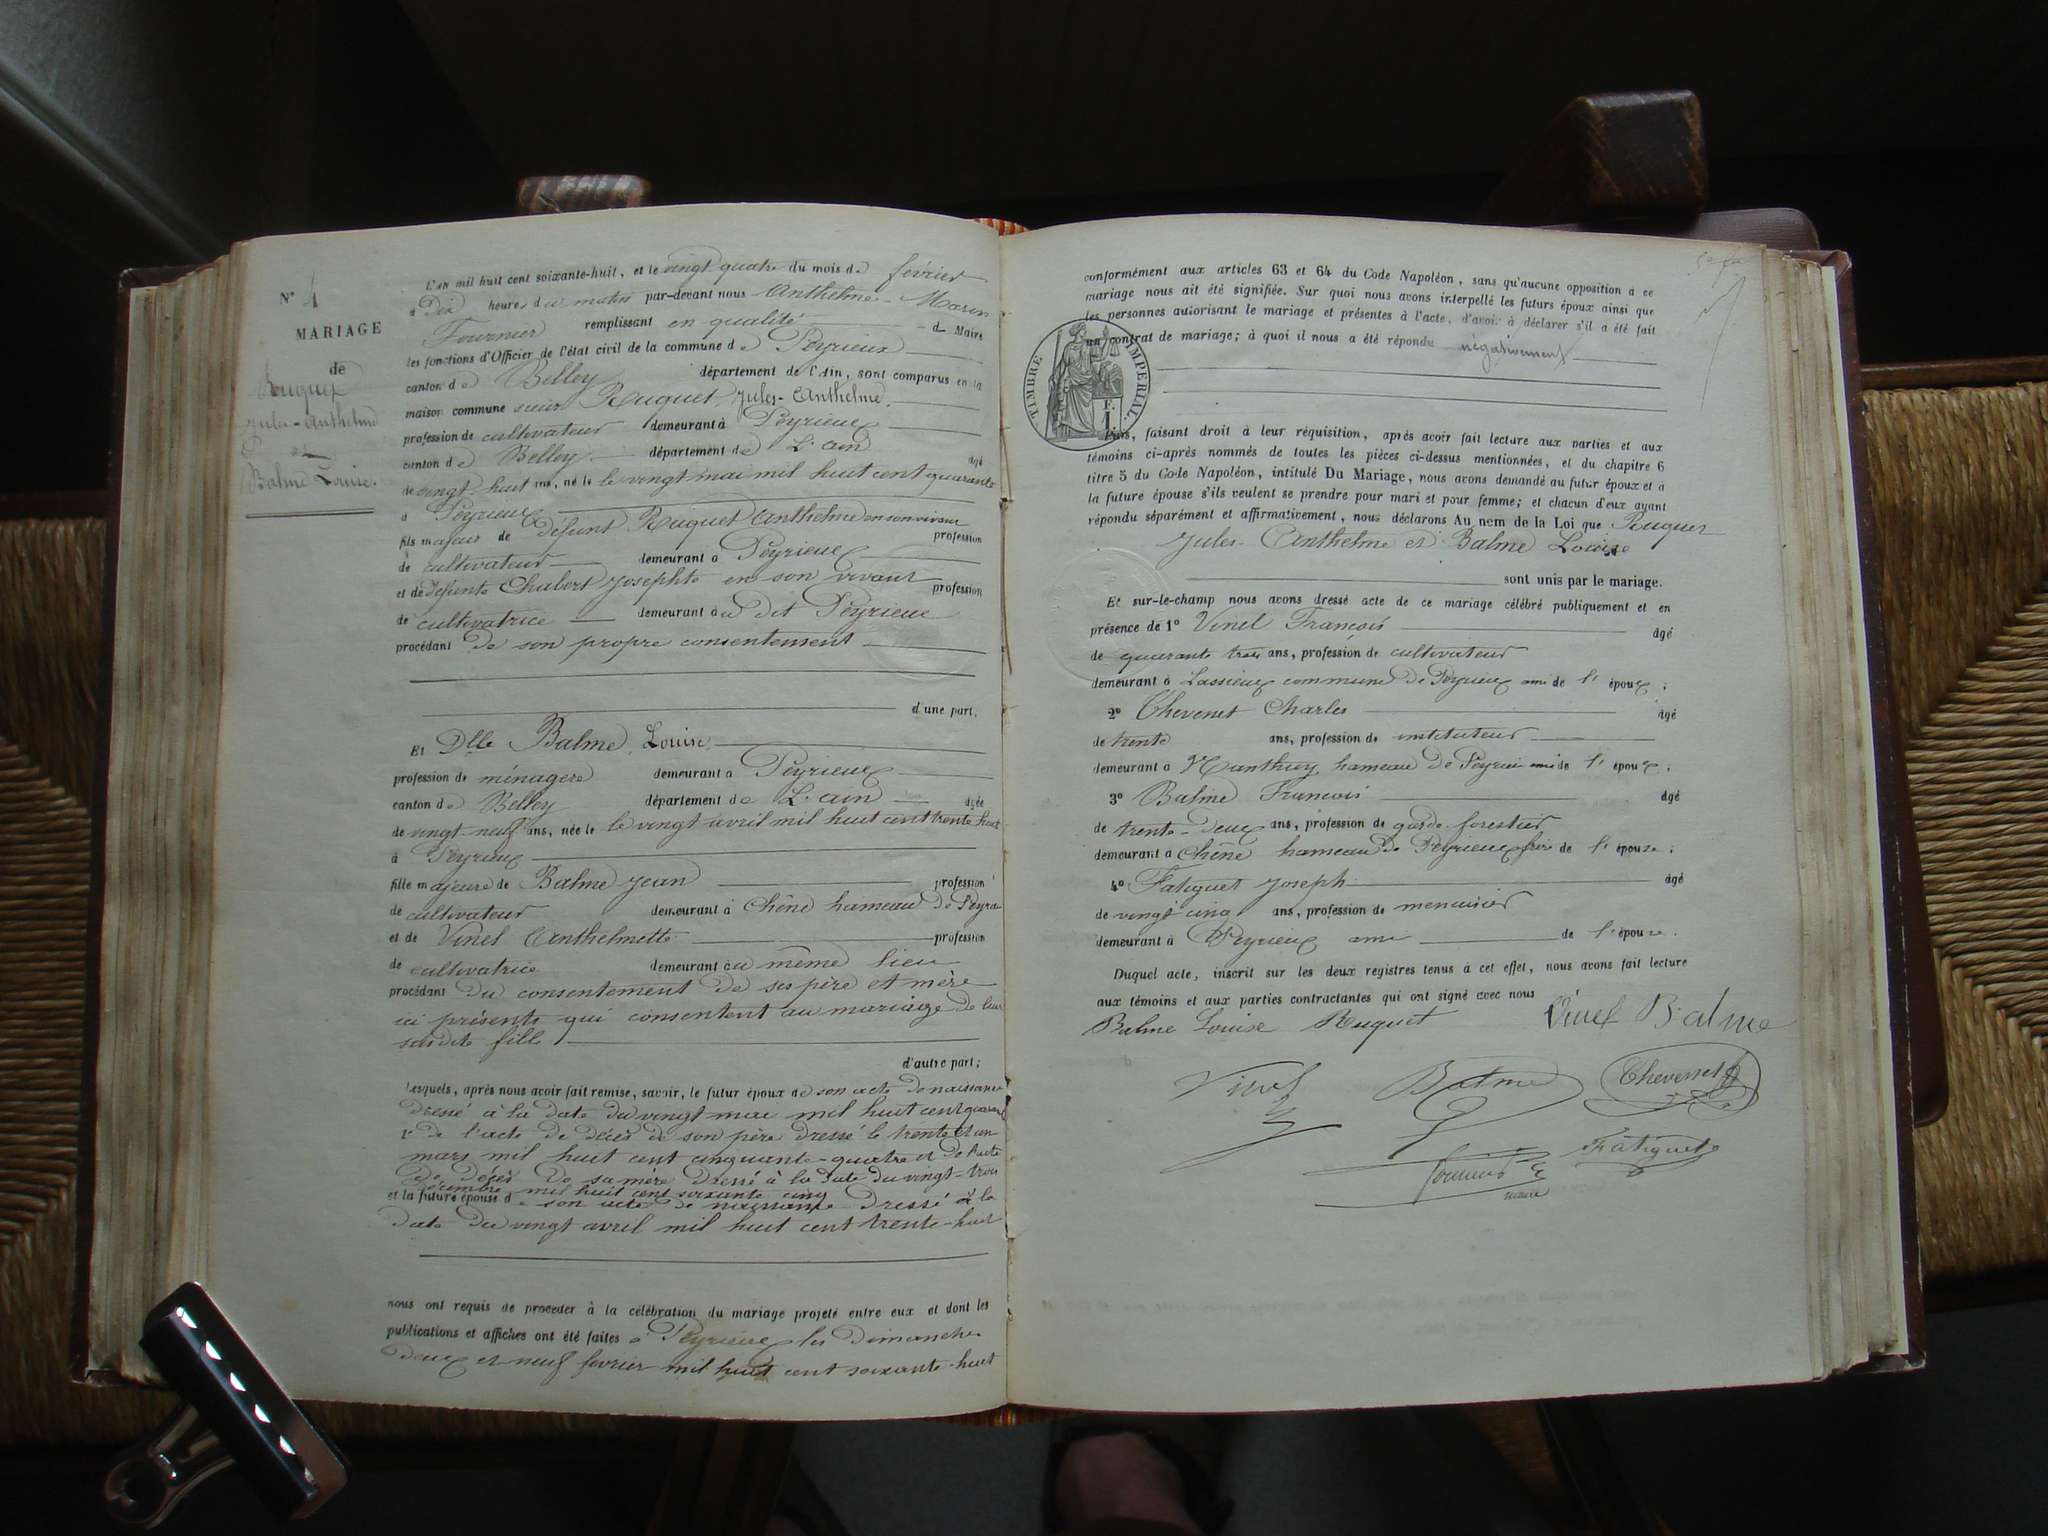 N° 4
MARIAGE
de
Ruquet
Jules-Anthelme
et
Balme Louise.
L'an mil huit cent soixante-huit, et le vingt quatre du mois de février
à Dix heures du matin par-devant nous Anthelme-Marin
Fournier remplissant en qualité de Maire
les fonctions d'Officier de l'état civil de la commune de Peyrieux
canton de Belley département de l'Ain, sont comparus en la
maison commune sieur Ruquet, Jules-Anthelme.
profession de cultivateur demeurant à Peyrieux
canton de Belley département de L'ain âgé
de vingt-huit ans, né le le vingt mai mil huit cent quarante
à Peyrieux
fils majeur de défunt Ruquet Anthelme en son vivant profession
de cultivateur demeurant à Peyrieux
et de défunte Chabert Josephte en son vivant profession
de cultivatrice demeurant à u dit Peyrieux
procédant de son propre consentement
d'une part,
Et Dlle Balme, Louise,
profession de ménagère demeurant à Peyrieux
canton de Belley département de L'ain âgée
de vingt-neuf ans, née le le vingt avril mil huit cent trente huit
à Peyrieux
fille majeure de Balme Jean profession
de cultivateur demeurant à Chêne hameau de Peyrieu
et de Vinel Anthelmette profession
de cultivatrice demeurant au même lieu
procédant du consentement de ses père et mère
ici présents qui consentent au mariage de leur
susdite fille
d'autre part;
Lesquels, après nous avoir fait remise, savoir, le futur époux de son acte de naissance
dressé à la date du vingt mai mil huit cent quarante
de l'acte de décès de son père dressé le trente et un
mars mil huit cent cinquante-quatre et de l'acte
de décès de sa mère dressé à la date du vingt-trois
décembre mil huit cent soixante cinq
et la future épouse de son acte de naissance dressé à la
date du vingt avril mil huit cent trente-huit
nous ont requis de procéder à la célébration du mariage projeté entre eux et dont les
publications et affiches ont été faites à Peyrieux les dimanches
deux et neuf février mil huit cent soixante-huit
conformément aux articles 63 et 64 du Code Napoléon, sans qu'aucune opposition à ce
mariage nous ait été signifiée. Sur quoi nous avons interpellé les futurs époux ainsi que
les personnes autorisant le mariage et présentes à l'acte, d'avoir à déclarer s'il a été fait
un contrat de mariage; à quoi il nous a été répondu négativement
TIMBRE IMPÉRIAL.
F. 1
Puis, faisant droit à leur réquisition, après avoir fait lecture aux parties et aux
témoins ci-après nommés de toutes les pièces ci-dessus mentionnées, et du chapitre 6
titre 5 du Code Napoléon, intitulé Du Mariage, nous avons demandé au futur époux et à
la future épouse s'ils veulent se prendre pour mari et pour femme; et chacun d'eux ayant
répondu séparément et affirmativement, nous déclarons Au nom de la Loi que Ruquet
Jules Anthelme et Balme Louise
sont unis par le mariage.
Et sur-le-champ nous avons dressé acte de ce mariage célébré publiquement et en
présence de 1° Vinel François âgé
de quarante trois ans, profession de cultivateur
demeurant à Lassieux commune de Peyrieux ami de l' époux;
2° Thevenet Charles âgé
de trente ans, profession de instituteur
demeurant à hameau de Peyrieu ami de l' époux;
3° Balme Francois âgé
de trente-deux ans, profession de garde forestier
demeurant à Chêne hameau de Peyrieux frère de l' épouse;
4° Fatiguet Joseph âgé
de vingt cinq ans, profession de menuisier
demeurant à Peyrieux ami de l'épouse.
Duquel acte, inscrit sur les deux registres tenus à cet effet, nous avons fait lecture
aux témoins et aux parties contractantes qui ont signé avec nous
Balme Louise Ruquet Vinel Balme
Vinel Balme Thevenet
Fournier Fatiguet
maire